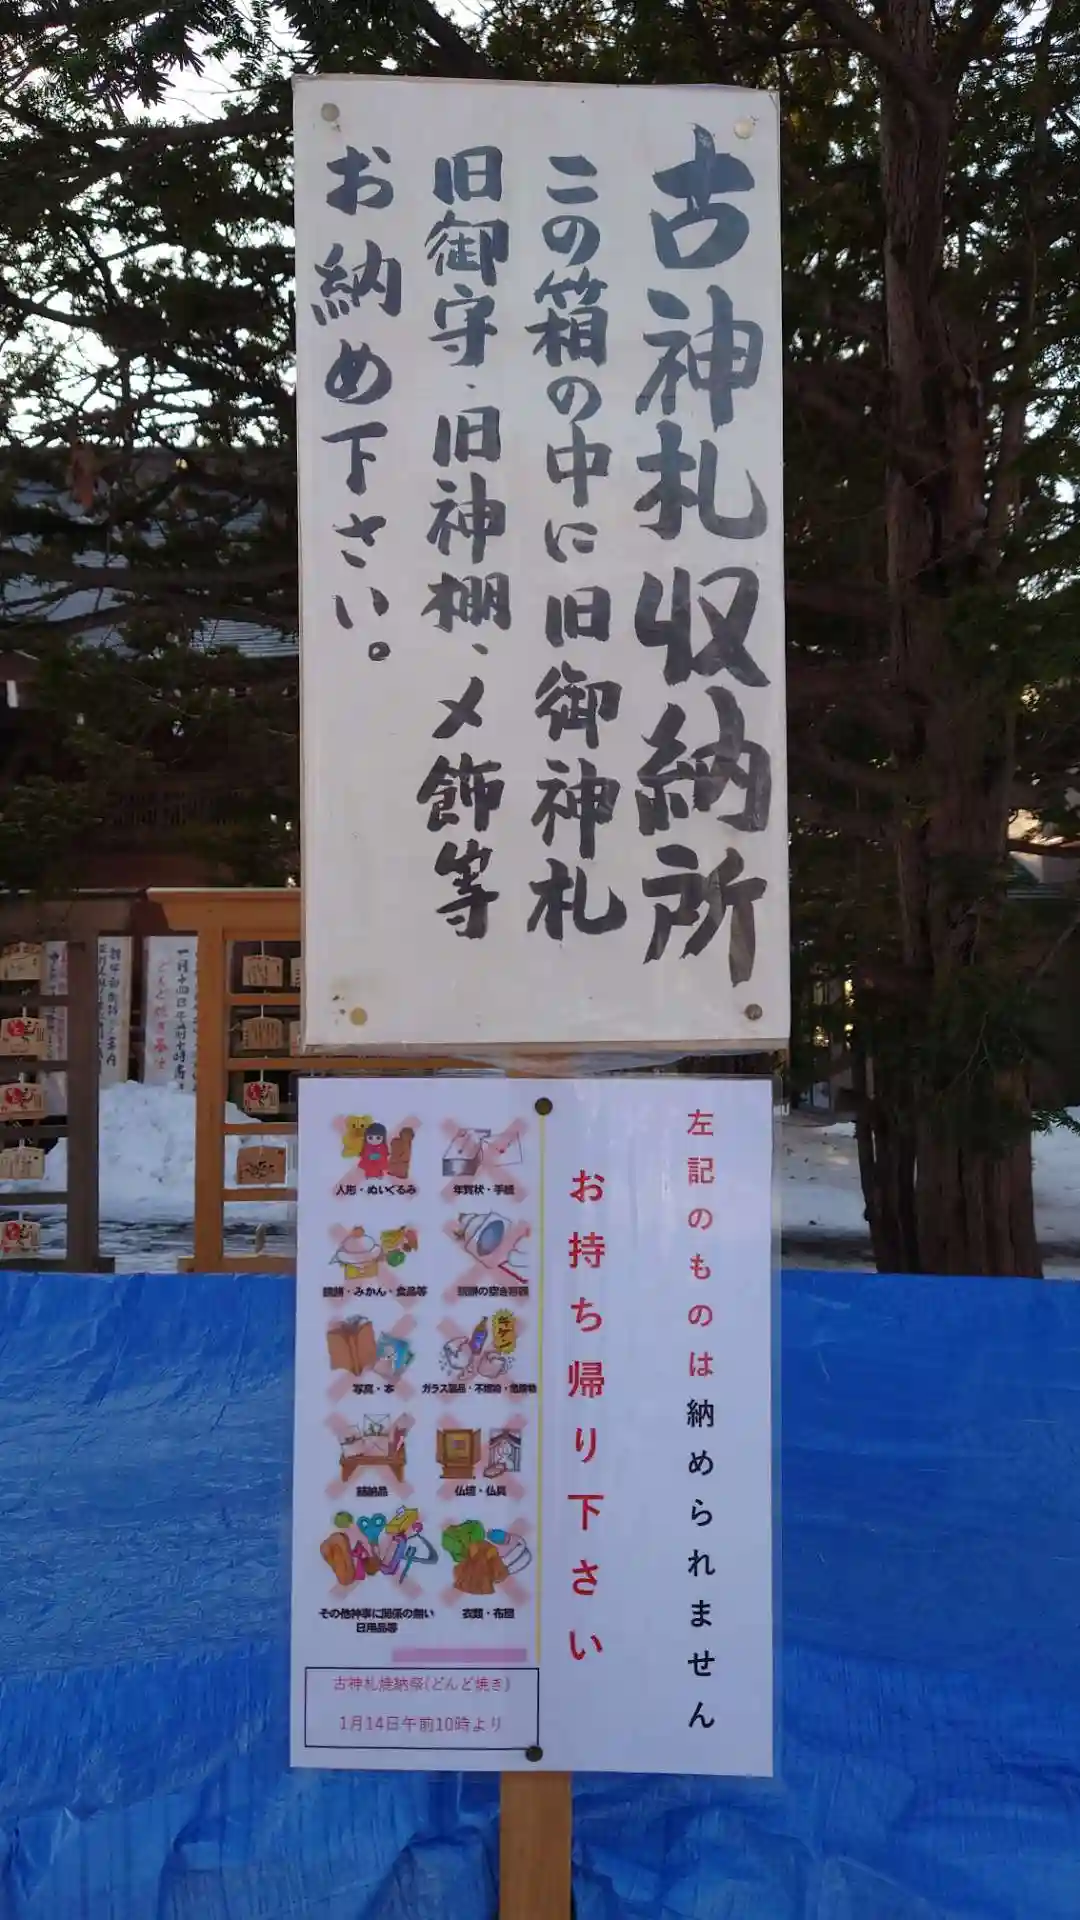 古神札収納所
この箱の中に旧御神札
旧御守、旧神棚、〆飾等
お納め下さい。
左記のものは納められません
お持ち帰り下さい
人形・ぬいぐるみ
年賀状・手紙
鏡餅・みかん・食品等
鏡餅の空き容器
写真・本
キケン
ガラス製品・不燃物・危険物
結納品
仏壇・仏具
その他神事に関係の無い
日用品等
衣類・布団
古神札焼納祭(どんど焼き)
1月14日午前10時より